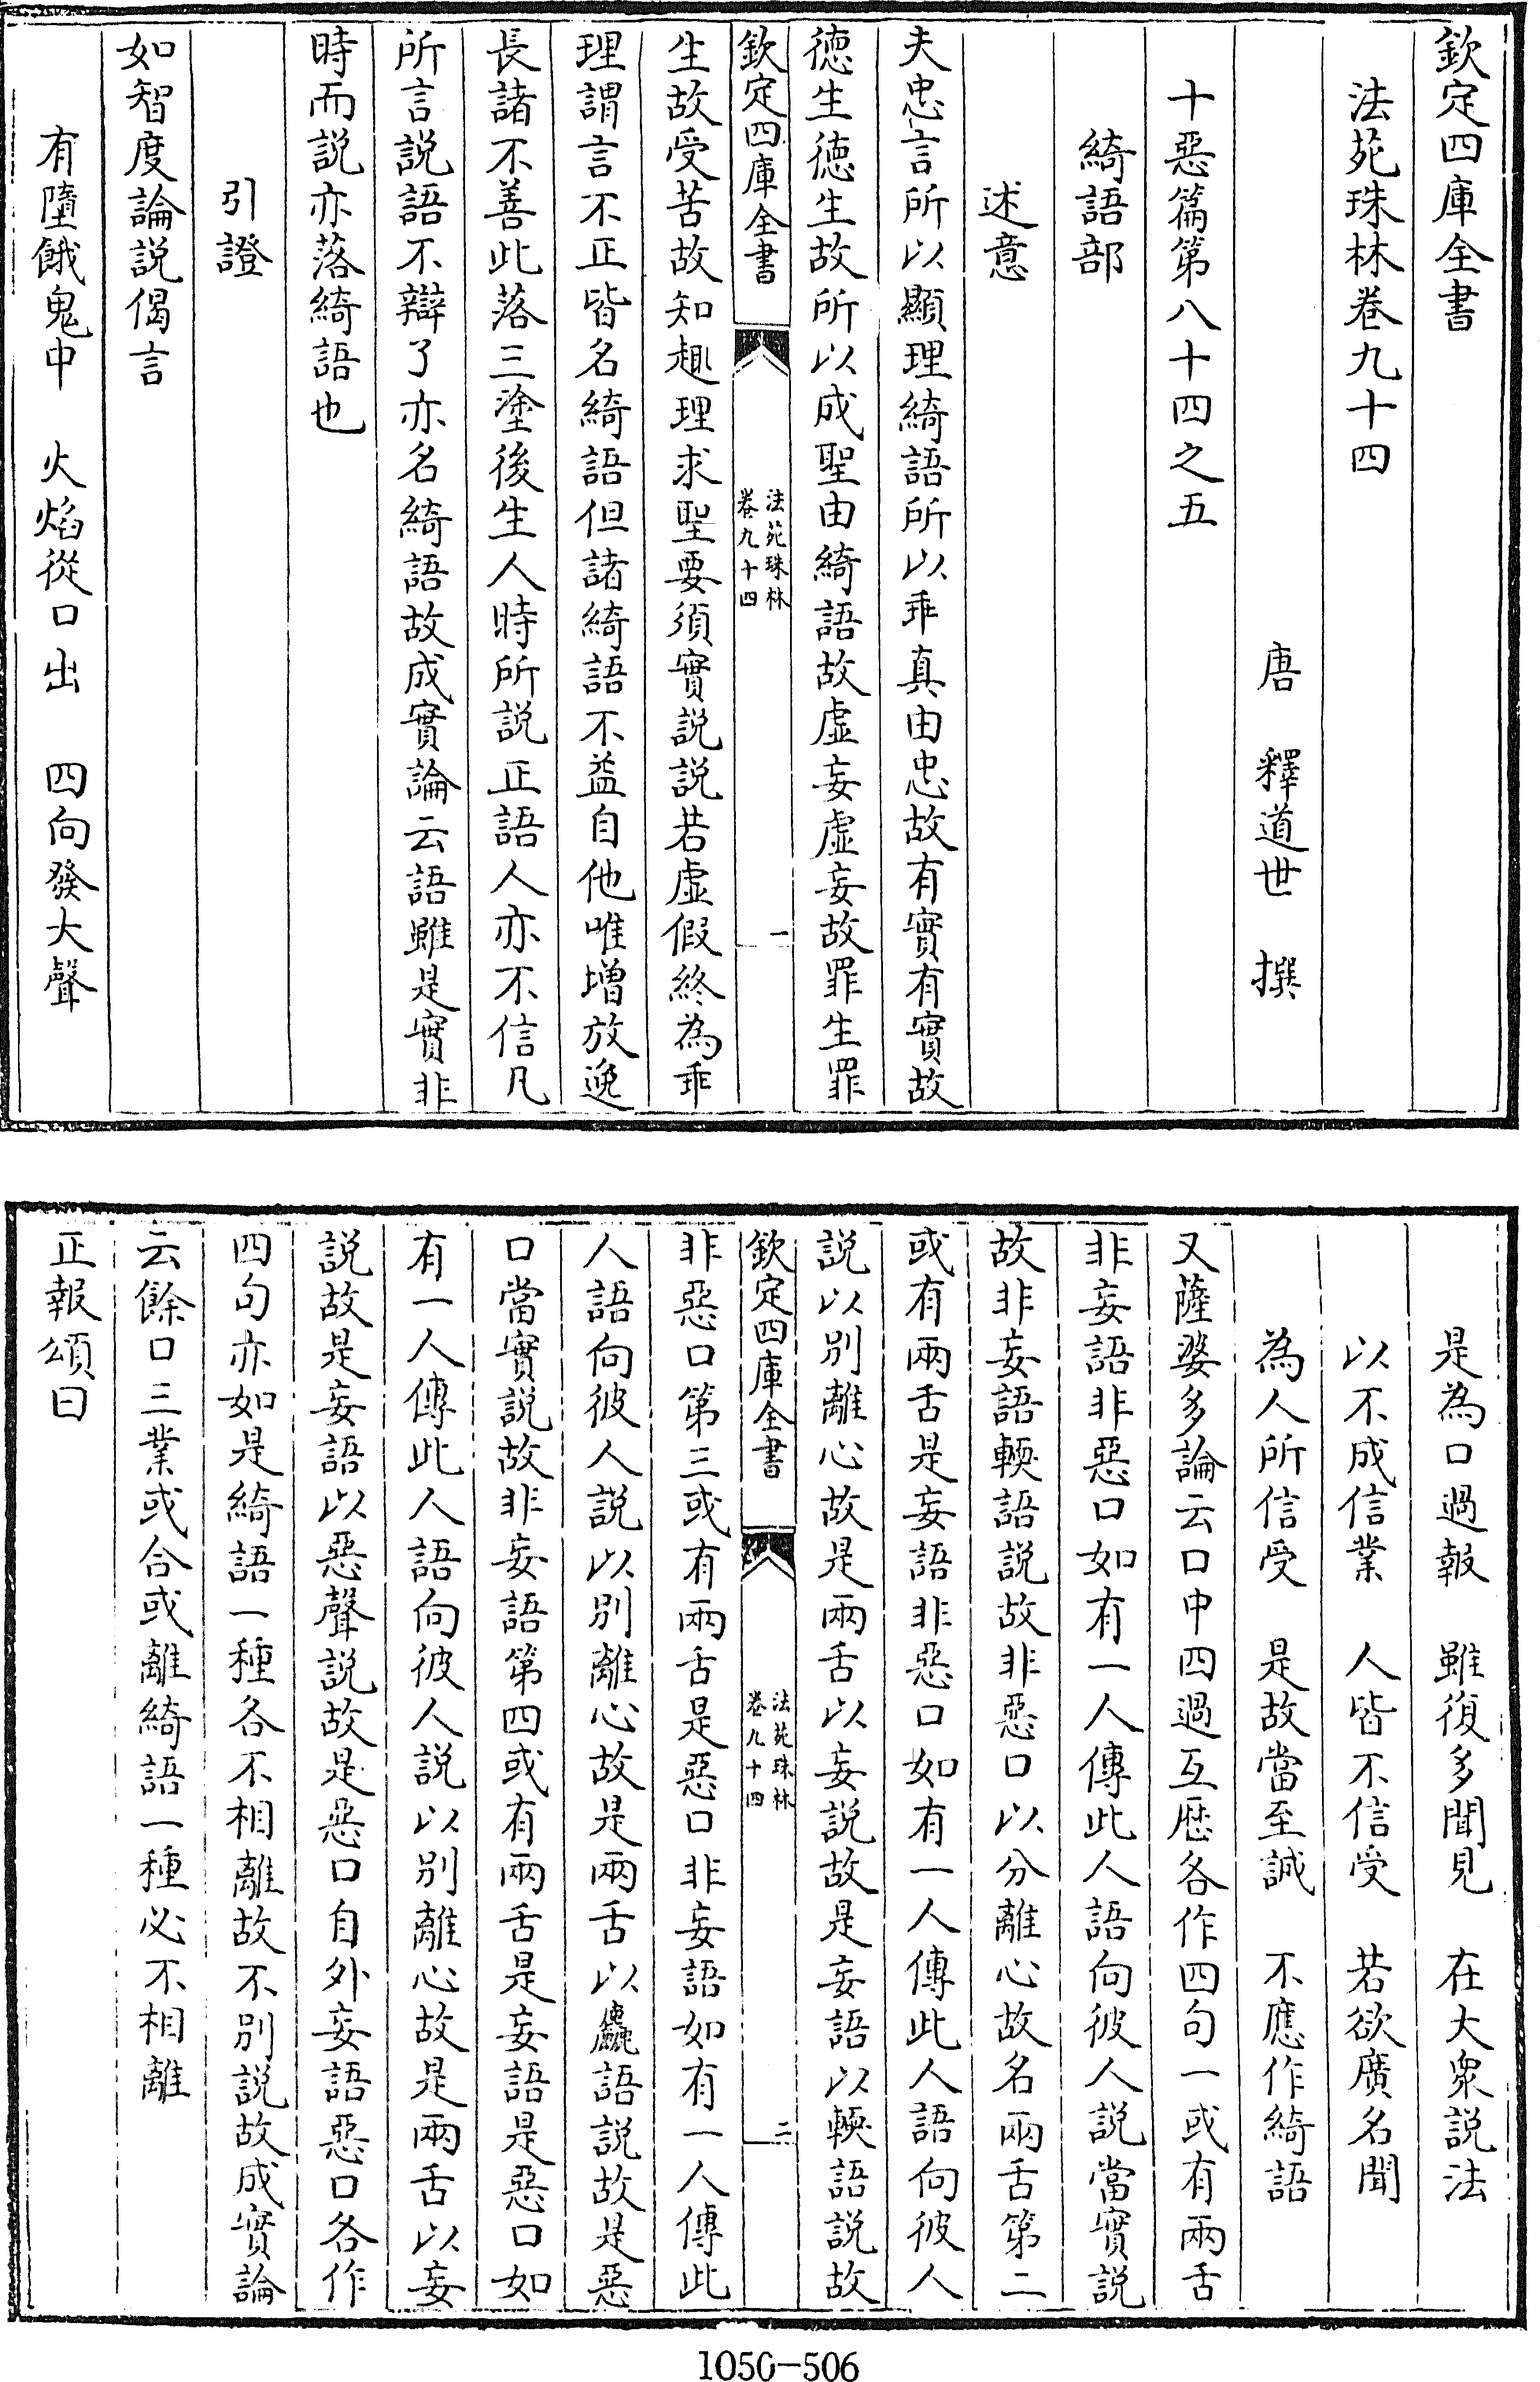 欽定四庫全書
法苑珠林卷九十四
唐　釋道世　撰
十惡篇第八十四之五
綺語部
述意
夫忠言所以顯理綺語所以乖真由忠故有實有實故
德生德生故所以成聖由綺語故虛妄虛妄故罪生罪
欽定四庫全書
法苑珠林
卷九十四
一
生故受苦故知趣理求聖要須實説説若虛假終為乖
理謂言不正皆名綺語但諸綺語不益自他唯增放逸
長諸不善此落三塗後生人時所説正語人亦不信凡
所言説語不辯了亦名綺語故成實論云語雖是實非
時而説亦落綺語也
引證
如智度論説偈言
有墮餓鬼中　火焰從口出　四向發大聲
是為口過報　雖復多聞見　在大衆説法
以不成信業　人皆不信受　若欲廣名聞
為人所信受　是故當至誠　不應作綺語
又薩婆多論云口中四過互歴各作四句一或有兩舌
非妄語非惡口如有一人傳此人語向彼人説當實説
故非妄語輭語説故非惡口以分離心故名兩舌第二
或有兩舌是妄語非惡口如有一人傳此人語向彼人
説以别離心故是兩舌以妄説故是妄語以輭語説故
欽定四庫全書
法苑珠林
卷九十四
二
非惡口第三或有兩舌是惡口非妄語如有一人傳此
人語向彼人説以别離心故是兩舌以麤語説故是惡
口當實説故非妄語第四或有兩舌是妄語是惡口如
有一人傳此人語向彼人説以别離心故是兩舌以妄
説故是妄語以惡聲説故是惡口自外妄語惡口各作
四句亦如是綺語一種各不相離故不别説故成實論
云餘口三業或合或離綺語一種必不相離
正報頌曰
1050-506